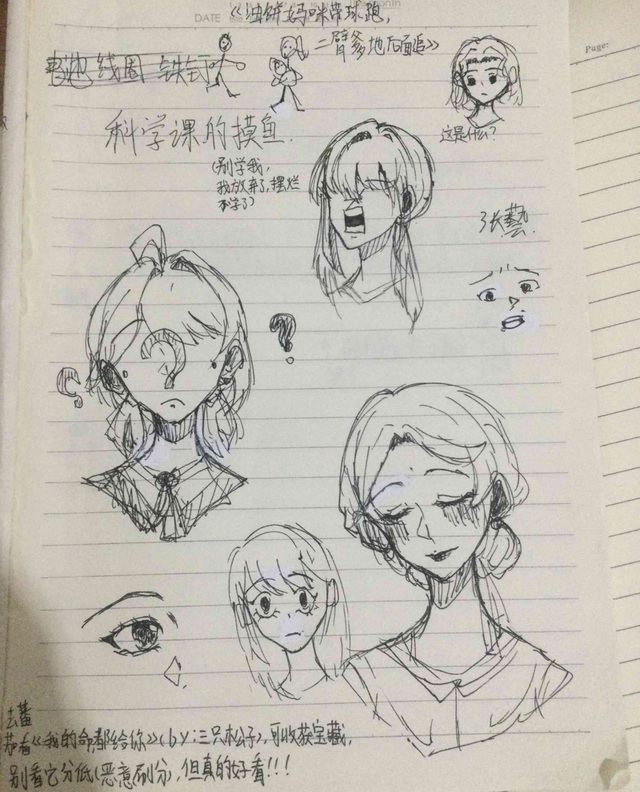 DATE
Page:
《油饼妈咪带球跑,
二臂爹地后面追》
电池 线圈 铁钉
科学课的摸鱼.
(别学我,
我放弃了,摆烂
不学了)
这是什么?
张藝.
?
?
去番茄
看《我的命都给你》(by:三只木公子),可收获宝藏,
别看它分低(恶意刷分),但真的好看!!!